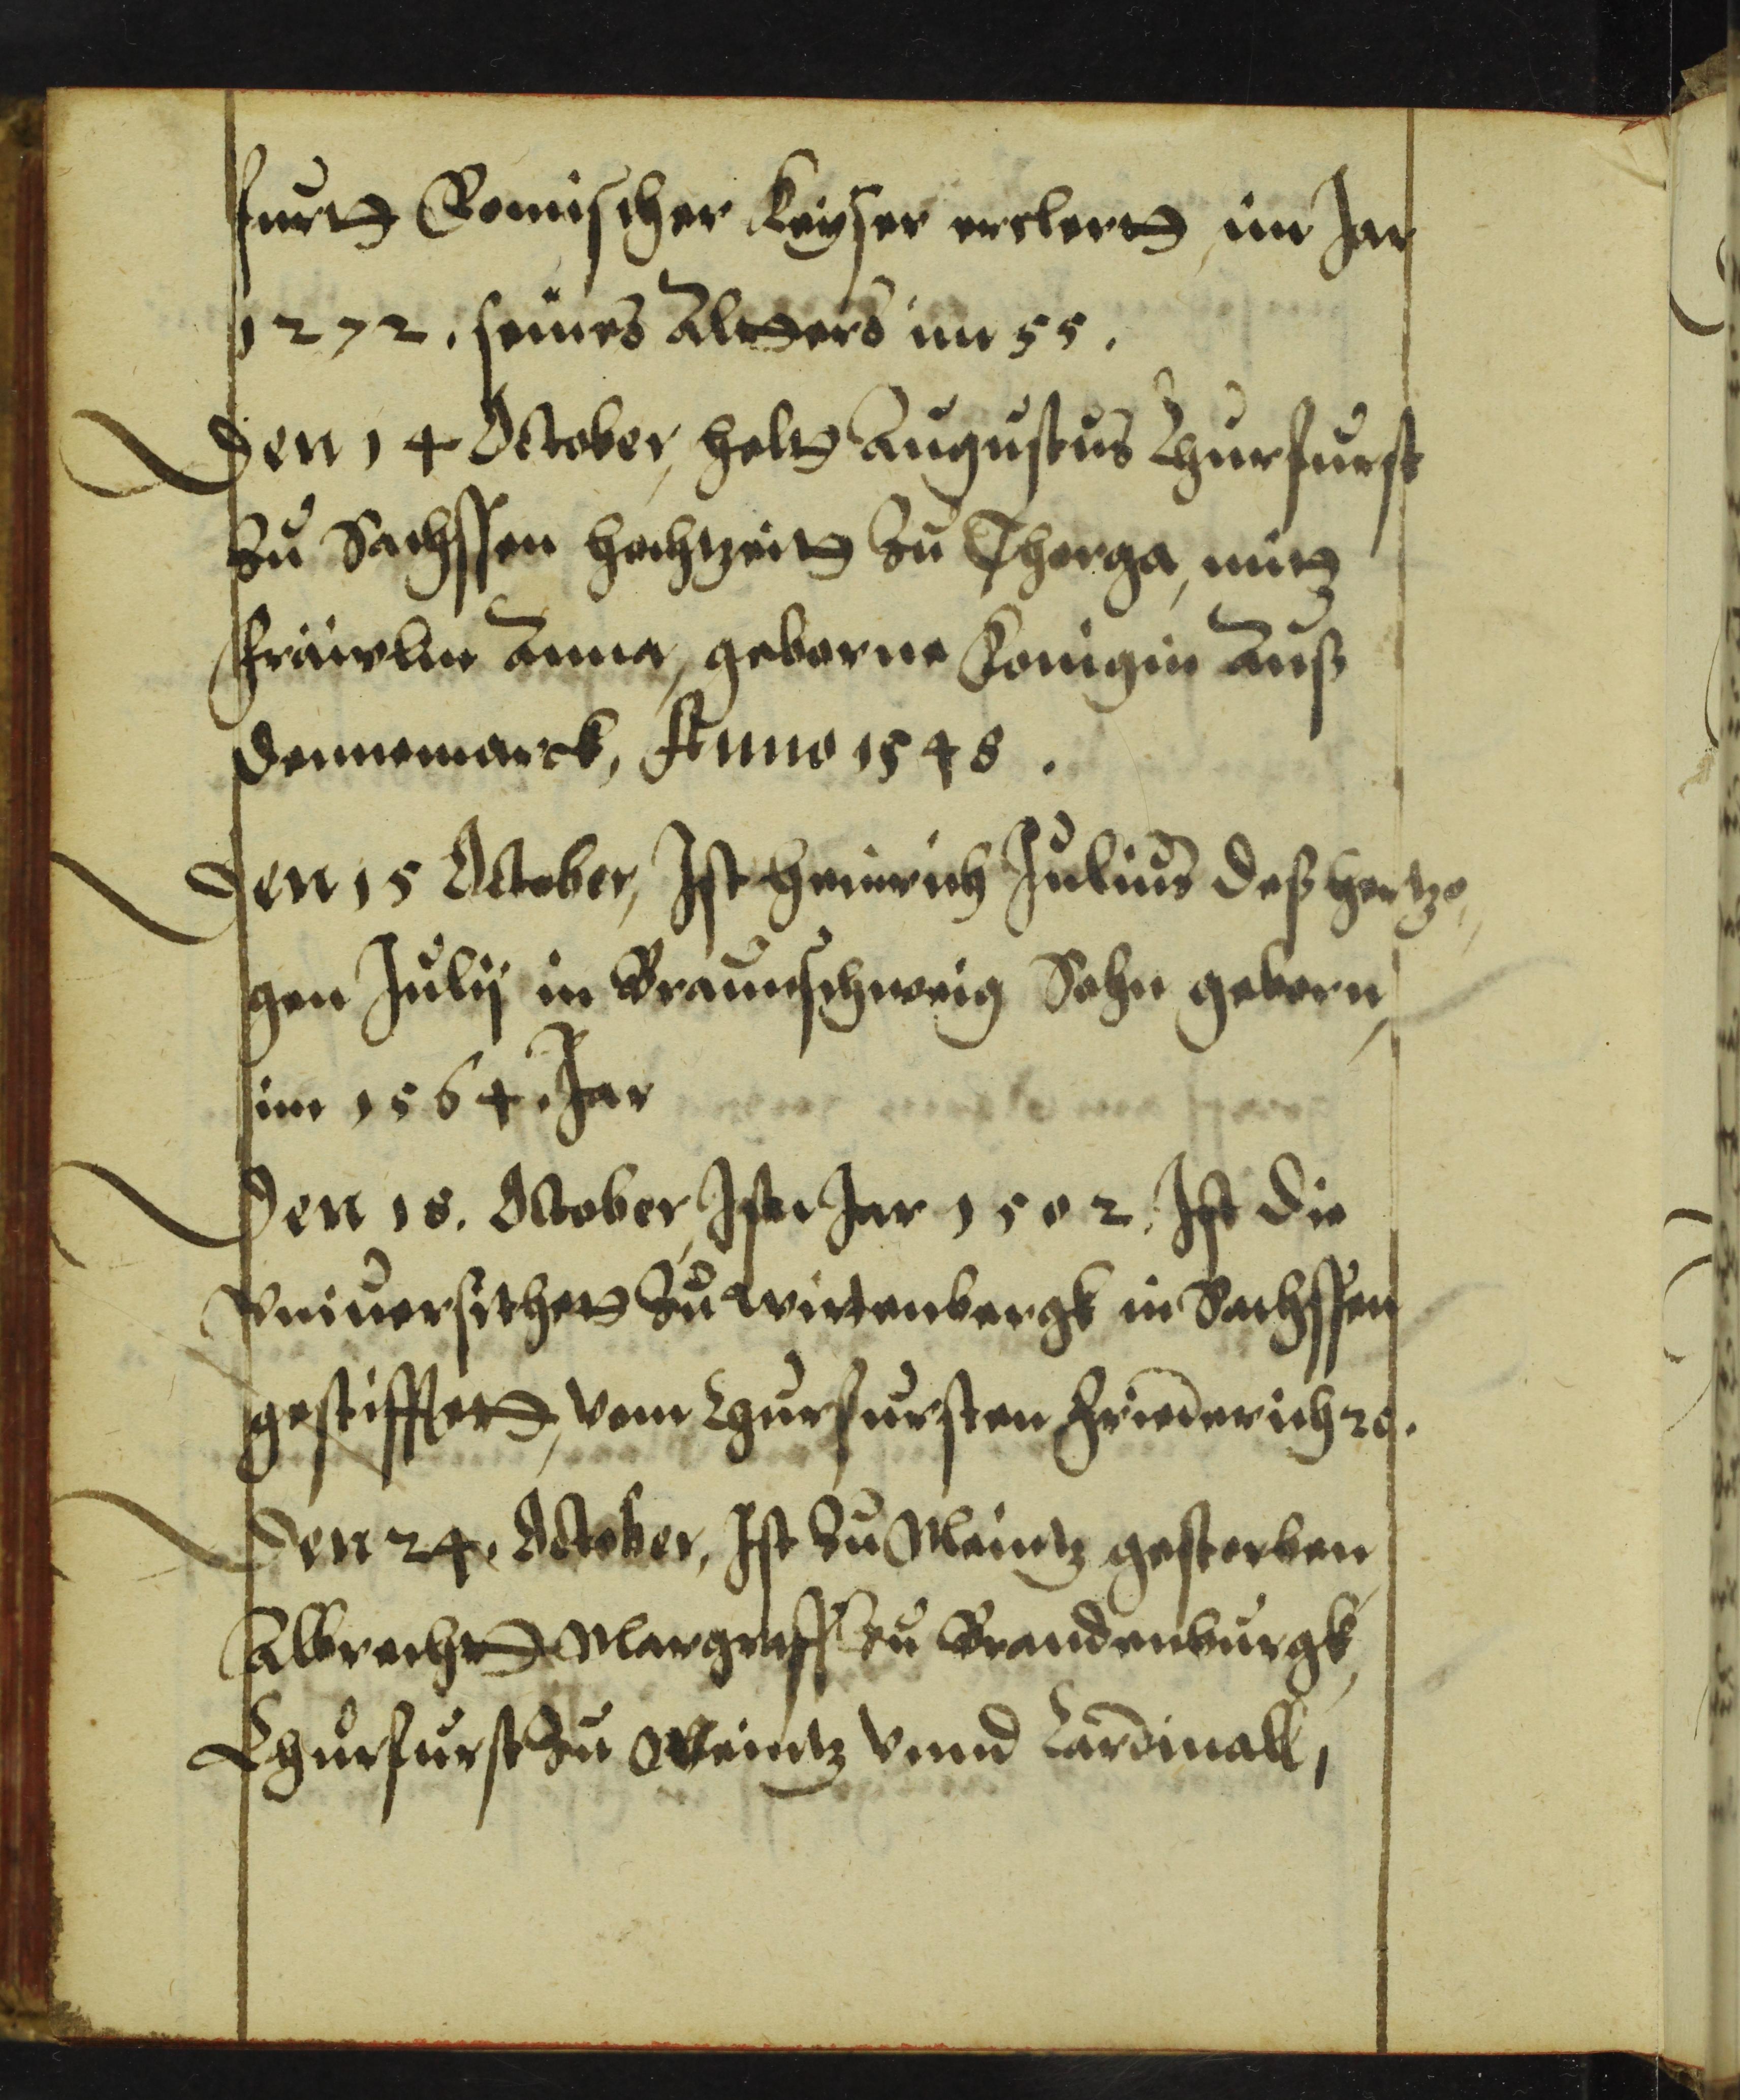 furtt Romischer Keyser erclertt, im Jar
1272. seines Altters im 55.
Den 14 October, heltt Augustus Churfurst
Zu Sachssen hochtzeitt Zu Thorga, mitt
freüwlin Anna, geborne Konigin Auß
Dennemarck, Anno 1548.
Den 15 October, Ist Heinrich Julius deß Hertzo,
gen Julij in Braunschweig Sohn geborn,
im 1564. Jar
Den 18. October, Im Jar 1502. Ist die
Vniuersithett Zu Wittenbergk in Sachssen
gestifftett, vom Churfursten Friederich 20.
Den 24. October, Ist Zu Meintz gestorben
Albrechtt Margraff Zu Brandenburgk,
Churfurst Zu Meintz vnnd Cardinall,